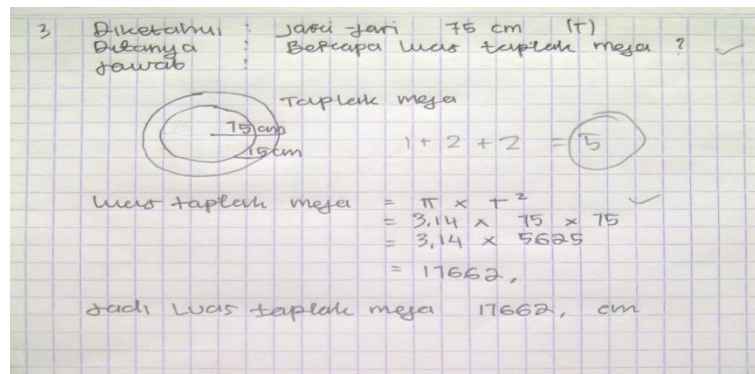 3 Diketahui : Jari-jari 75 cm (r)
Ditanya : Berapa luas taplak meja ?
Jawab :
Taplak meja
75 cm
15 cm
1 + 2 + 2 = 5
Luas taplak meja = π x r²
= 3,14 x 75 x 75
= 3,14 x 5625
= 17662,
Jadi Luas taplak meja 17662, cm